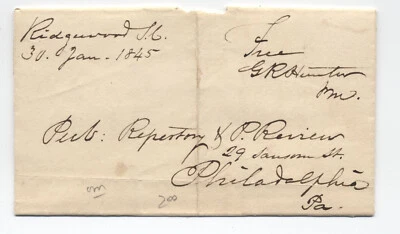 Ridgewood S.C.
30. Jan. 1845
Free
G R Hunter
P.M.
Pub: Repertory & P. Review
29 Sansom St.
Philadelphia
Pa.
200